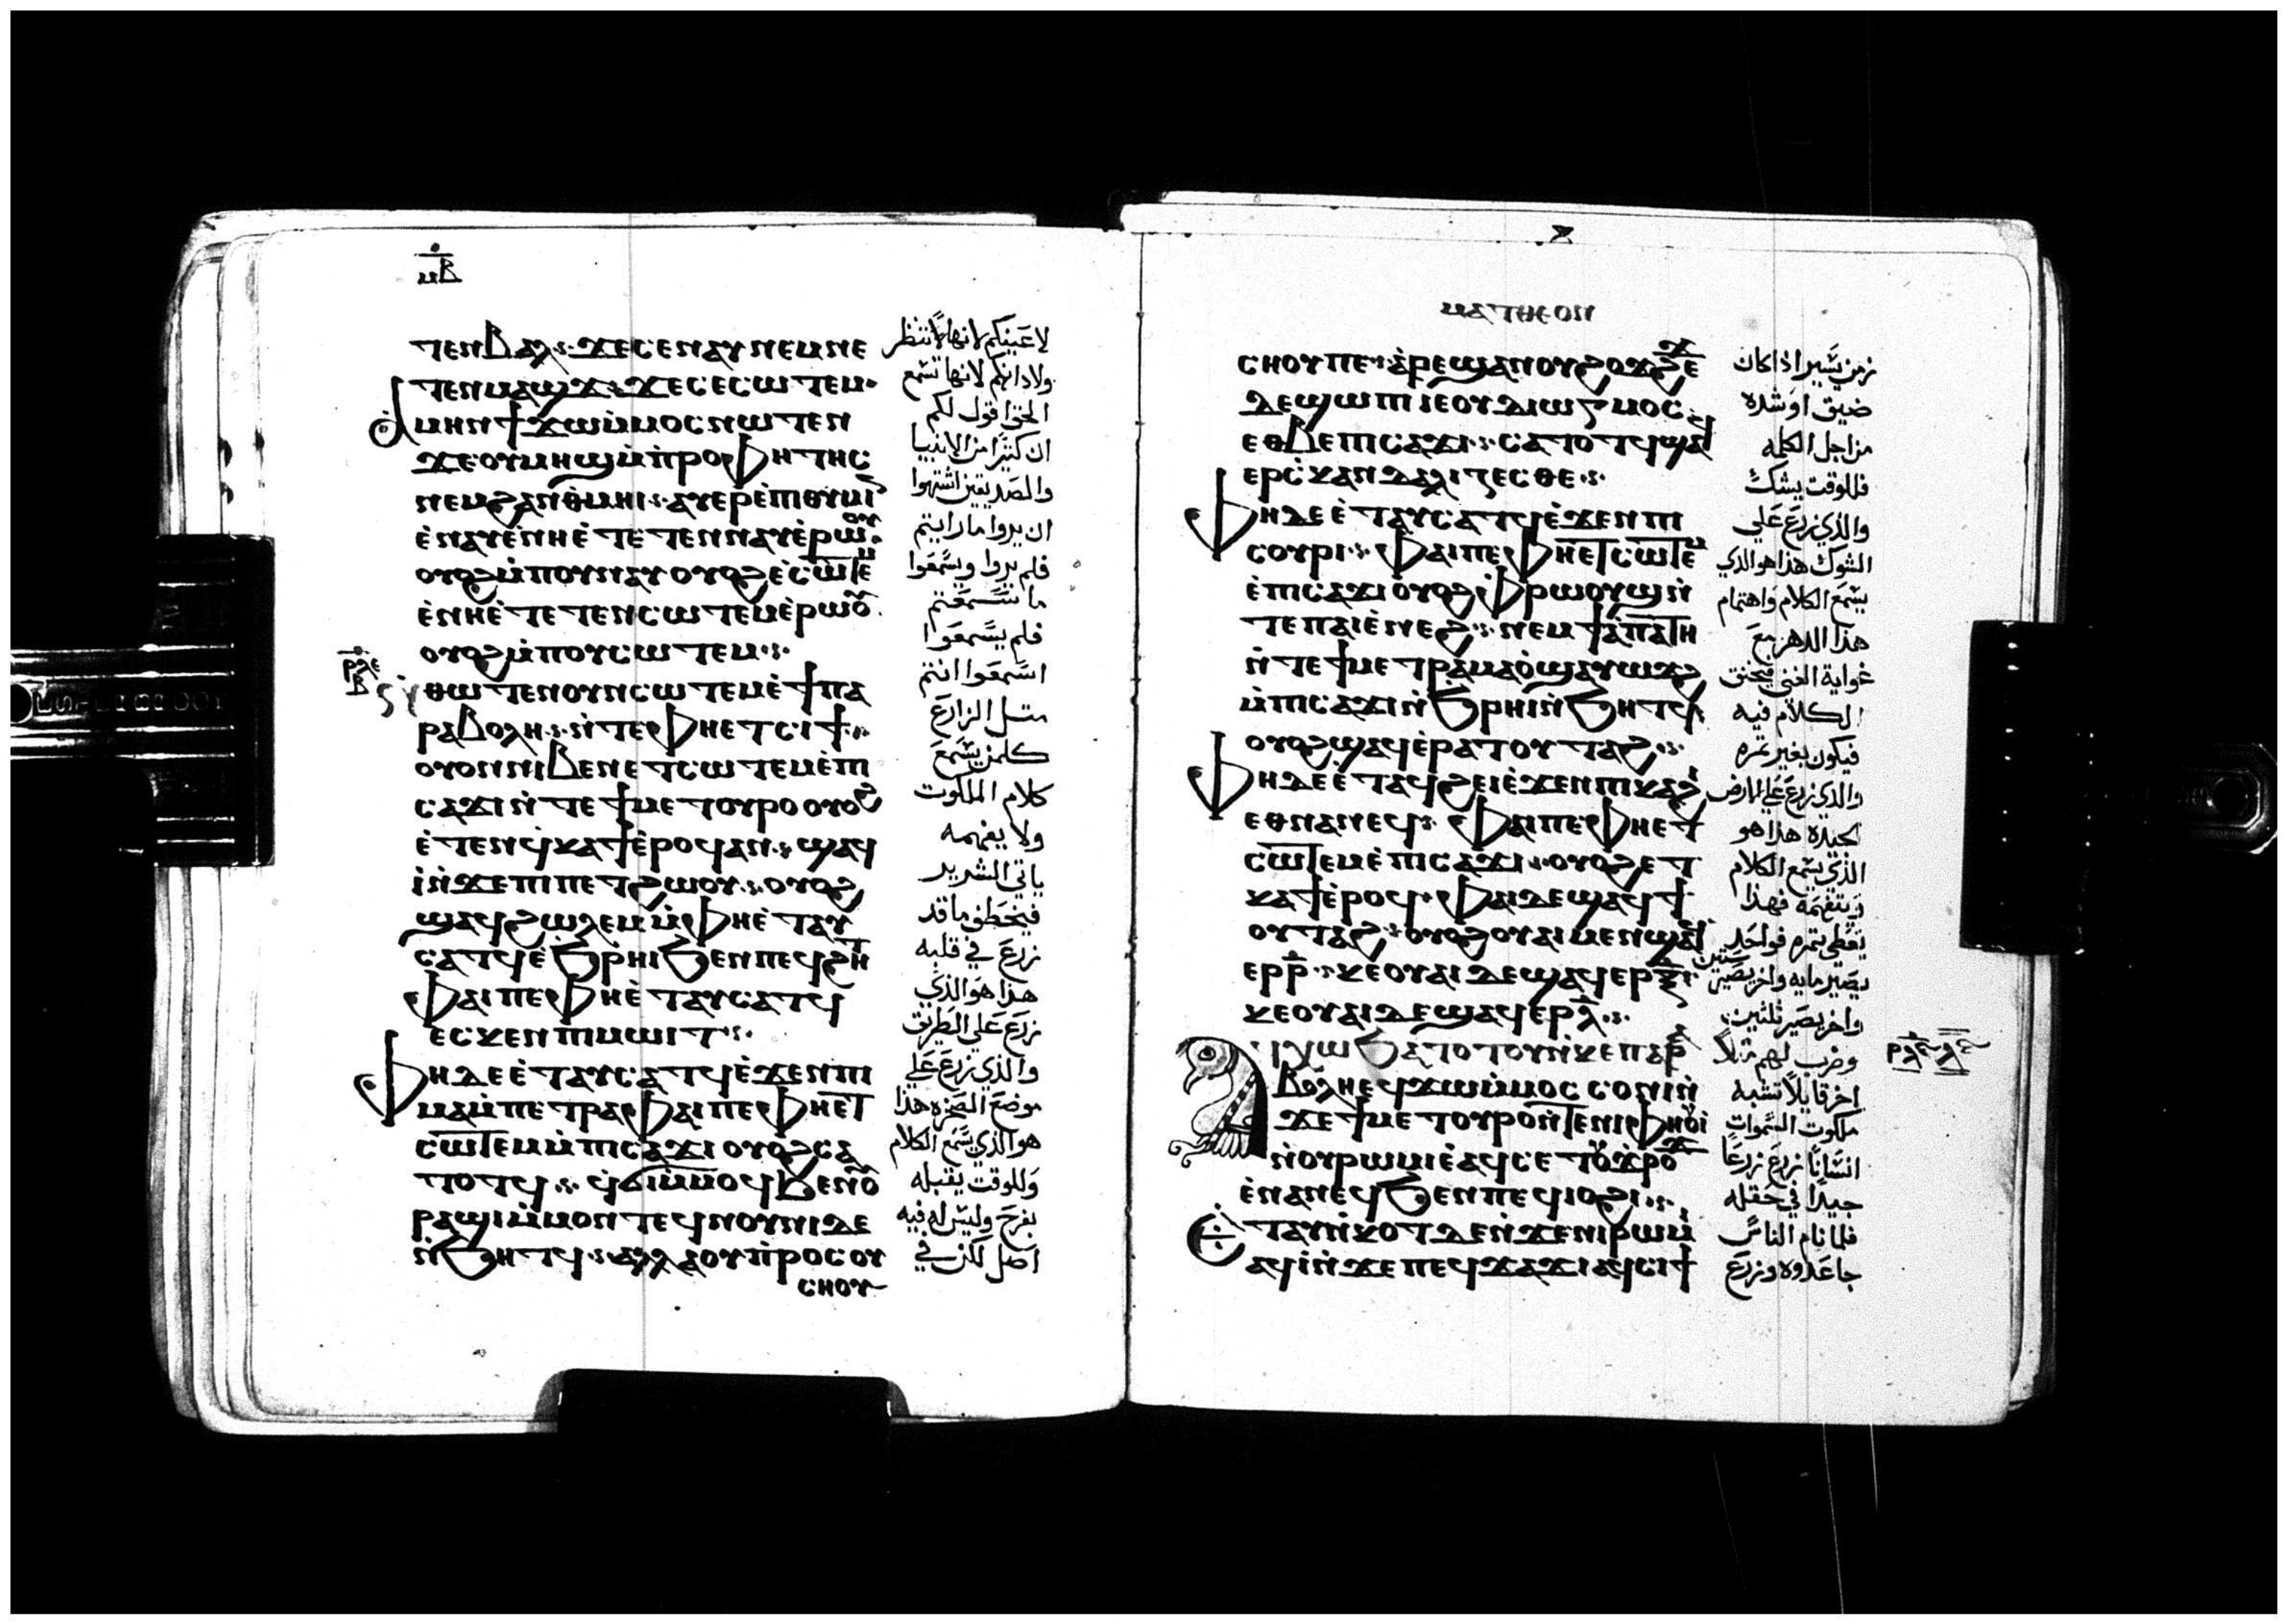 ⲙⲃ
ⲧⲉⲛⲃⲁⲗ ϫⲉⲥⲉⲛⲁⲩ ⲛⲉⲙⲛⲉ
ⲧⲉⲛⲙⲁϣϫ ϫⲉⲥⲉⲥⲱⲧⲉⲙ
ⲁⲙⲏⲛ ϯϫⲱ ⲙ̀ⲙⲟⲥ ⲛⲱⲧⲉⲛ
ϫⲉⲟⲩⲙⲏϣ ⲙ̀ⲡⲣⲟⲫⲏⲧⲏⲥ
ⲛⲉⲙϩⲁⲛⲑⲙⲏⲓ ⲁⲩⲉⲣⲉ̀ⲡⲓⲑⲩⲙⲓⲛ
ⲉ̀ⲛⲁⲩ ⲉ̀ⲛⲏⲉ̀ⲧⲉⲧⲉⲛⲛⲁⲩ ⲉ̀ⲣⲱⲟⲩ
ⲟⲩⲟϩ ⲙ̀ⲡⲟⲩⲛⲁⲩ ⲟⲩⲟϩ ⲉ̀ⲥⲱⲧⲉⲙ
ⲉ̀ⲛⲏⲉ̀ⲧⲉⲧⲉⲛⲥⲱⲧⲉⲙ ⲉ̀ⲣⲱⲟⲩ
ⲟⲩⲟϩ ⲙ̀ⲡⲟⲩⲥⲱⲧⲉⲙ
ⲣⲗⲉ
ⲃ
ⲛ̀ⲑⲱⲧⲉⲛ ⲟⲩⲛ ⲥⲱⲧⲉⲙ ⲉ̀ϯⲡⲁ
ⲣⲁⲃⲟⲗⲏ ⲛ̀ⲧⲉⲫⲏⲉⲧⲥⲓϯ
ⲟⲩⲟⲛ ⲛⲓⲃⲉⲛ ⲉⲧⲥⲱⲧⲉⲙ ⲉ̀ⲡⲓ
ⲥⲁϫⲓ ⲛ̀ⲧⲉϯⲙⲉⲧⲟⲩⲣⲟ ⲟⲩⲟϩ
ⲉ̀ⲧⲉⲛϥⲕⲁϯ ⲉ̀ⲣⲟϥ ⲁⲛ ϣⲁϥ
ⲓ̀ ⲛ̀ϫⲉⲡⲓⲡⲉⲧϩⲱⲟⲩ ⲟⲩⲟϩ
ϣⲁϥϩⲱⲗⲉⲙ ⲙ̀ⲫⲏⲉ̀ⲧⲁⲩ
ⲥⲁⲧϥ ⲉ̀ϧⲣⲏⲓ ϧⲉⲛⲡⲉϥϩⲏⲧ
ⲫⲁⲓ ⲡⲉ ⲫⲏⲉ̀ⲧⲁⲩⲥⲁⲧϥ
ⲉⲥⲕⲉⲛ ⲡⲓⲙⲱⲓⲧ
ⲫⲏ ⲇⲉ ⲉ̀ⲧⲁⲩⲥⲁⲧϥ ⲉ̀ϫⲉⲛⲡⲓ
ⲙⲁⲙ̀ⲡⲉⲧⲣⲁ ⲫⲁⲓ ⲡⲉ ⲫⲏⲉⲧ
ⲥⲱⲧⲉⲙ ⲙ̀ⲡⲓⲥⲁϫⲓ ⲟⲩⲟϩ ⲥⲁ
ⲧⲟⲧϥ ϥϭⲓ ⲙ̀ⲙⲟϥ ϧⲉⲛⲟⲩ
ⲣⲁϣⲓ ⲙ̀ⲙⲟⲛⲧⲉϥⲛⲟⲩⲛⲓ ⲇⲉ
ⲛ̀ϧⲏⲧϥ ⲁⲗⲗⲁ ⲟⲩⲡⲣⲟⲥⲟⲩ
ⲥⲏⲟⲩ
لاعينكم لانها تنظر
ولاذانكم لانها تسمع
الحق اقول لكم
ان كثيرا من الانبيا
والصديقين اشتهوا
ان يروا ما رايتم
فلم يروا ويسمعوا
ما سمعتم
فلم يسمعوا
اسمعوا انتم
مثل الزارع
كلمن يسمع
كلام الملكوت
ولا يفهمه
ياتي الشرير
فيخطف ما قد
زرع في قلبه
هذا هو الذي
زرع علي الطريق
والذي زرع علي
موضع الصخره هذا
هو الذي يسمع الكلام
وللوقت يقبله
بفرح وليس له فيه
اصل لكن في
ⲙⲁⲧⲑⲉⲟⲛ
ⲥⲏⲟⲩ ⲡⲉ ⲁ̀ⲣⲉϣⲁⲛ ⲟⲩϩⲟϫϩⲉϫ
ⲇⲉ ϣⲱⲡⲓ ⲓⲉ ⲟⲩⲇⲓⲱⲅⲙⲟⲥ
ⲉⲑⲃⲉⲡⲓⲥⲁϫⲓ ⲥⲁⲧⲟⲧϥ ϣⲁϥ
ⲉⲣⲥ̀ⲕⲁⲛⲇⲁⲗⲓⲍⲉⲥⲑⲉ
ⲫⲏ ⲇⲉ ⲉ̀ⲧⲁⲩⲥⲁⲧϥ ⲉ̀ϫⲉⲛⲡⲓ
ⲥⲟⲩⲣⲓ ⲫⲁⲓ ⲡⲉ ⲫⲏⲉⲧⲥⲱⲧⲉⲙ
ⲉ̀ⲡⲓⲥⲁϫⲓ ⲟⲩⲟϩ ⲫⲣⲱⲟⲩϣ ⲛ̀
ⲧⲉⲡⲁⲓⲉ̀ⲛⲉϩ ⲛⲉⲙ ϯⲁ̀ⲡⲁⲧⲏ
ⲛ̀ⲧⲉϯⲙⲉⲧⲣⲁⲙⲁⲟ̀ ϣⲁⲩⲱϫϩ
ⲙ̀ⲡⲓⲥⲁϫⲓ ⲛ̀ϧⲣⲏⲓ ⲛ̀ϧⲏⲧϥ
ⲟⲩⲟϩ ϣⲁϥⲉⲣⲁⲧⲟⲩⲧⲁϩ
ⲫⲏ ⲇⲉ ⲉ̀ⲧⲁϥϩⲉⲓ ⲉ̀ϫⲉⲛⲡⲓⲕⲁϩⲓ
ⲉⲑⲛⲁⲛⲉϥ ⲫⲁⲓ ⲡⲉ ⲫⲏⲉⲧ
ⲥⲱⲧⲉⲙ ⲉ̀ⲡⲓⲥⲁϫⲓ ⲟⲩⲟϩ ⲉⲧ
ⲕⲁϯ ⲉ̀ⲣⲟϥ ⲫⲁⲓ ⲇⲉ ϣⲁϥϯ
ⲟⲩⲧⲁϩ ⲟⲩⲟϩ ⲟⲩⲁⲓ ⲙⲉⲛ ϣⲁϥ
ⲉⲣⲣ̅ ⲕⲉⲟⲩⲁⲓ ⲇⲉ ϣⲁϥⲉⲣⲝ̅
ⲕⲉⲟⲩⲁⲓ ⲇⲉ ϣⲁϥⲉⲣⲗ̅
ⲁϥⲭⲱ ϧⲁⲧⲟⲧⲟⲩ ⲛ̀ⲕⲉⲡⲁⲣⲁ
ⲃⲟⲗⲏ ⲉϥϫⲱ ⲙ̀ⲙⲟⲥ ⲥⲟⲛⲓ ⲛ̀
ϫⲉϯⲙⲉⲧⲟⲩⲣⲟ ⲛ̀ⲧⲉⲛⲓⲫⲏⲟⲩⲓ
ⲛ̀ⲟⲩⲣⲱⲙⲓ ⲉ̀ⲁϥⲥⲉⲧ ⲟⲩϫⲣⲟϫ
ⲉ̀ⲛⲁⲛⲉϥ ϧⲉⲛⲡⲉϥⲓⲟϩⲓ
ⲉ̀ⲧⲁⲩⲛ̀ⲕⲟⲧ ⲇⲉ ⲛ̀ϫⲉⲛⲓⲣⲱⲙⲓ
ⲁϥⲓ̀ ⲛ̀ϫⲉⲡⲉϥϫⲁϫⲓ ⲁϥⲥⲓϯ
زمن يسير اذا كان
ضيق او شده
من اجل الكلمه
فللوقت يشك
والذي زرع علي
الشوك هذا هو الذي
يسمع الكلام واهتمام
هذا الدهر مع
غواية الغني فيخنق
الكلام فيه
فيكون بغير ثمره
والذي زرع علي الارض
الجيده هذا هو
الذي يسمع الكلام
ويتفهمه فهذا
يعطي ثمره فواحد
يصير مايه واخر يصير ستين
واخر يصير ثلثين
وضرب لهم مثلا
اخر قايلا تشبه
ملكوت السموات
انسانا زرع زرعا
جيدا في حقله
فلما نام الناس
جا عدوه وزرع